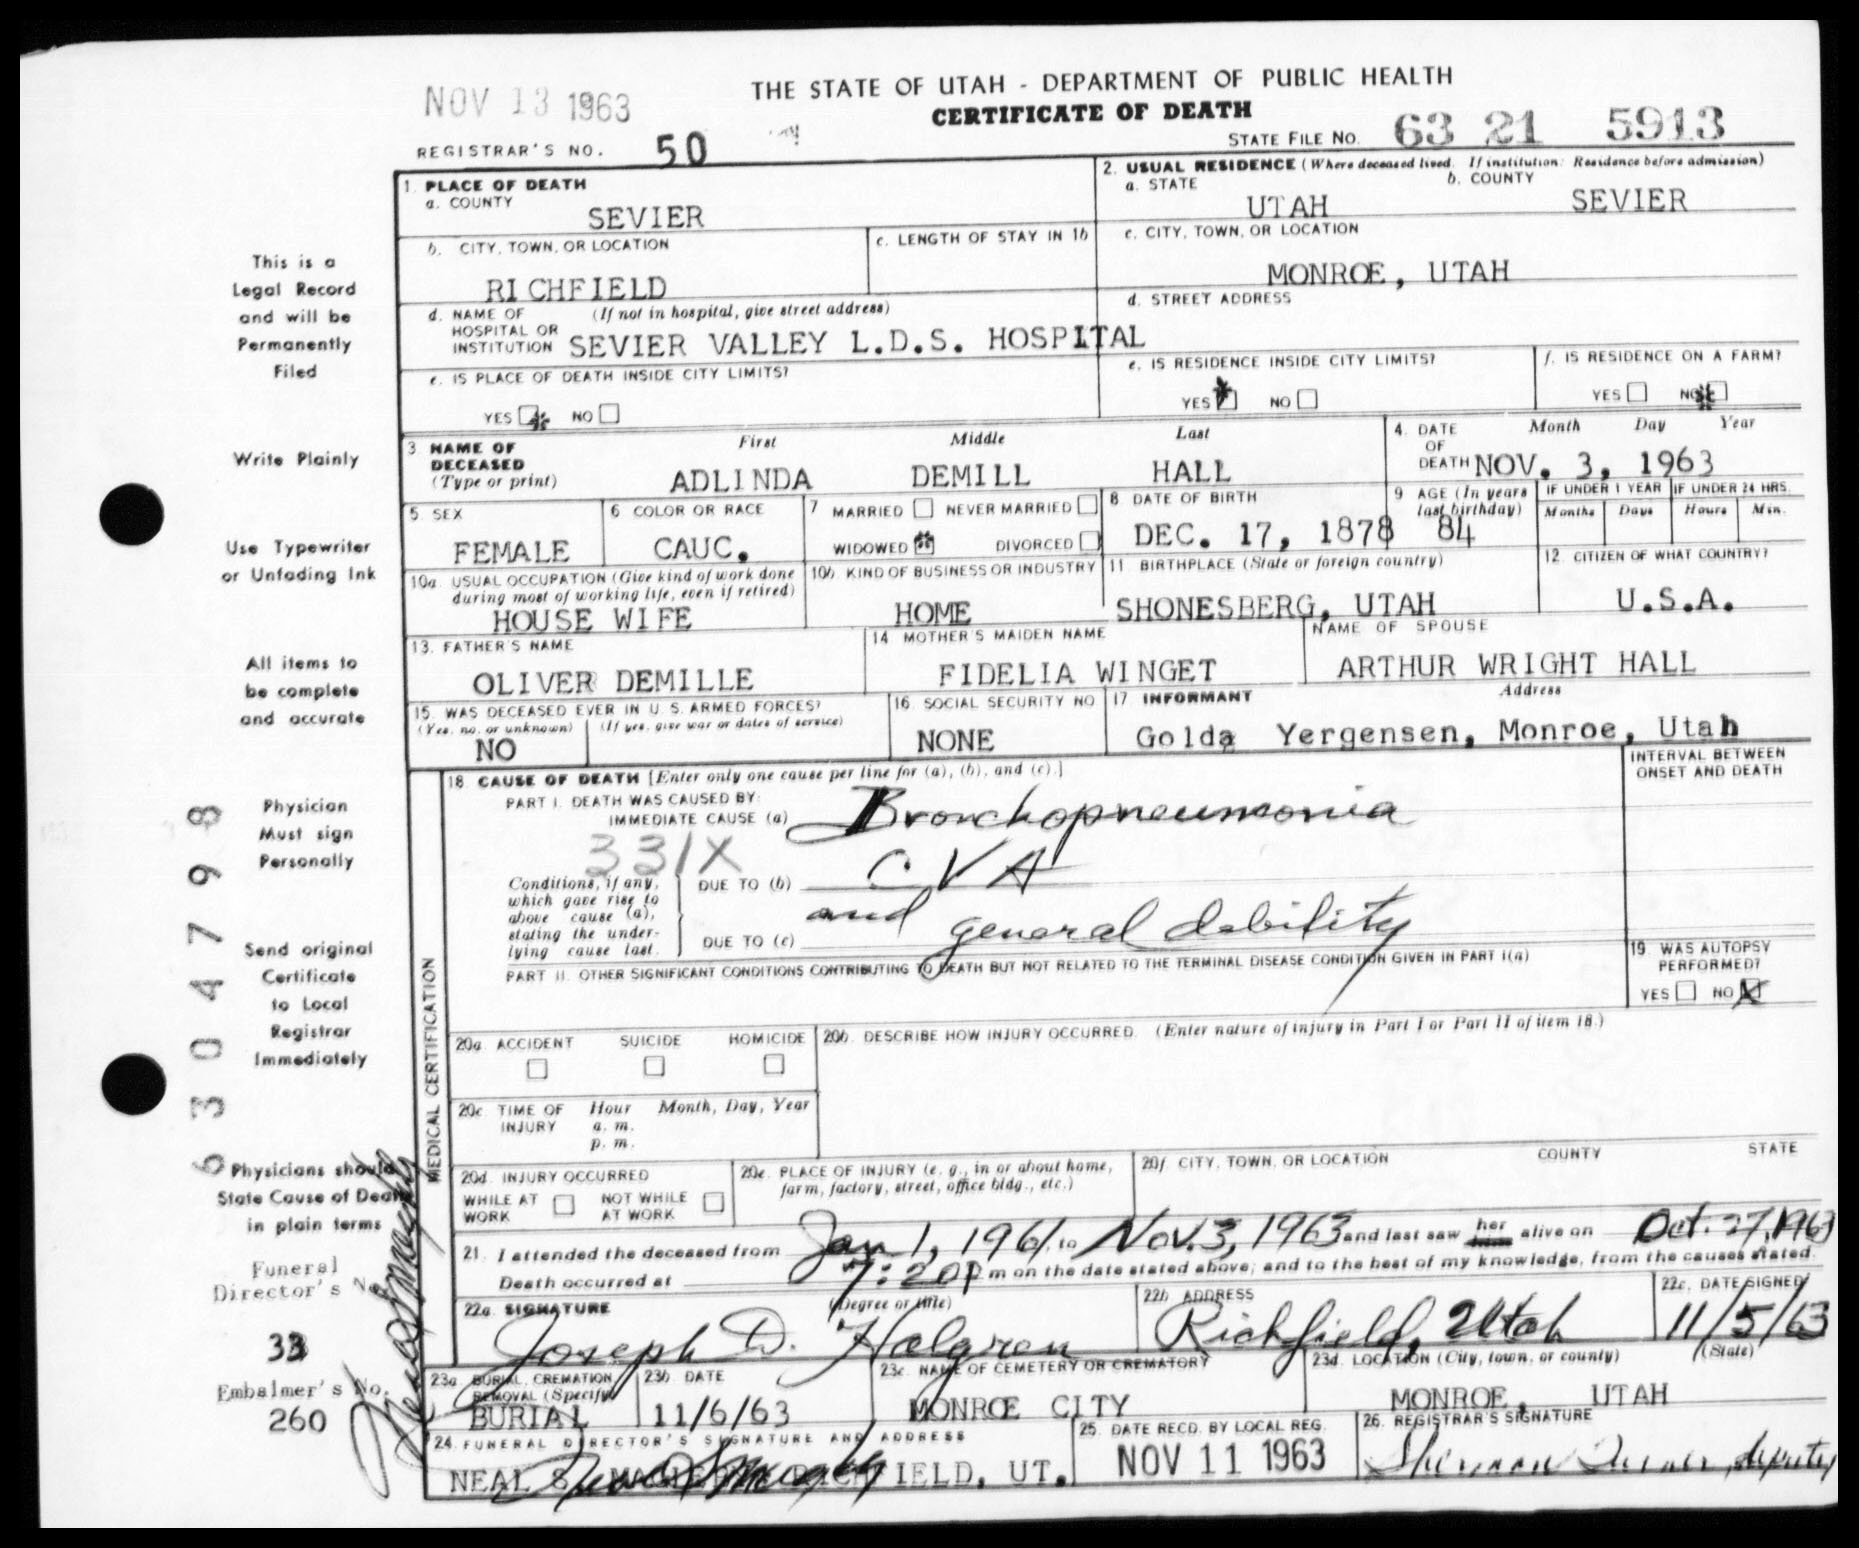 NOV 13 1963
THE STATE OF UTAH - DEPARTMENT OF PUBLIC HEALTH
CERTIFICATE OF DEATH
REGISTRAR'S NO. 50
STATE FILE NO. 63 21 5913
1. PLACE OF DEATH
a. COUNTY
SEVIER
2. USUAL RESIDENCE (Where deceased lived. If institution: Residence before admission)
a. STATE b. COUNTY
UTAH SEVIER
b. CITY, TOWN, OR LOCATION
RICHFIELD
c. LENGTH OF STAY IN 1b
c. CITY, TOWN, OR LOCATION
MONROE, UTAH
d. NAME OF HOSPITAL OR INSTITUTION (If not in hospital, give street address)
SEVIER VALLEY L.D.S. HOSPITAL
d. STREET ADDRESS
e. IS PLACE OF DEATH INSIDE CITY LIMITS?
YES NO
e. IS RESIDENCE INSIDE CITY LIMITS?
YES NO
f. IS RESIDENCE ON A FARM?
YES NO
3. NAME OF DECEASED (Type or print)
First Middle Last
ADLINDA DEMILL HALL
4. DATE OF DEATH Month Day Year
NOV. 3, 1963
5. SEX
FEMALE
6. COLOR OR RACE
CAUC.
7. MARRIED NEVER MARRIED
WIDOWED DIVORCED
8. DATE OF BIRTH
DEC. 17, 1878
9. AGE (In years last birthday)
84
IF UNDER 1 YEAR
Months Days
IF UNDER 24 HRS.
Hours Min.
10a. USUAL OCCUPATION (Give kind of work done during most of working life, even if retired)
HOUSE WIFE
10b. KIND OF BUSINESS OR INDUSTRY
HOME
11. BIRTHPLACE (State or foreign country)
SHONESBERG, UTAH
12. CITIZEN OF WHAT COUNTRY?
U.S.A.
13. FATHER'S NAME
OLIVER DEMILLE
14. MOTHER'S MAIDEN NAME
FIDELIA WINGET
NAME OF SPOUSE
ARTHUR WRIGHT HALL
15. WAS DECEASED EVER IN U.S. ARMED FORCES?
(Yes, no, or unknown) (If yes, give war or dates of service)
NO
16. SOCIAL SECURITY NO
NONE
17. INFORMANT Address
Golda Yergensen, Monroe, Utah
18. CAUSE OF DEATH [Enter only one cause per line for (a), (b), and (c).]
INTERVAL BETWEEN ONSET AND DEATH
PART I. DEATH WAS CAUSED BY:
IMMEDIATE CAUSE (a) Bronchopneumonia
331X
Conditions, if any, which gave rise to above cause (a), stating the underlying cause last.
DUE TO (b) CVA
and general debility
DUE TO (c)
PART II. OTHER SIGNIFICANT CONDITIONS CONTRIBUTING TO DEATH BUT NOT RELATED TO THE TERMINAL DISEASE CONDITION GIVEN IN PART I(a)
19. WAS AUTOPSY PERFORMED?
YES NO X
MEDICAL CERTIFICATION
20a. ACCIDENT SUICIDE HOMICIDE
20b. DESCRIBE HOW INJURY OCCURRED. (Enter nature of injury in Part I or Part II of item 18.)
20c. TIME OF INJURY Hour Month, Day, Year
a. m.
p. m.
20d. INJURY OCCURRED
WHILE AT WORK NOT WHILE AT WORK
20e. PLACE OF INJURY (e. g., in or about home, farm, factory, street, office bldg., etc.)
20f. CITY, TOWN, OR LOCATION COUNTY STATE
21. I attended the deceased from Jan 1, 1961, to Nov. 3, 1963 and last saw her him alive on Oct. 27, 1963
Death occurred at 7:20 p m on the date stated above; and to the best of my knowledge, from the causes stated.
22a. SIGNATURE (Degree or title)
Joseph D. Halgren
22b. ADDRESS
Richfield, Utah
22c. DATE SIGNED
11/5/63
23a. BURIAL, CREMATION REMOVAL (Specify)
BURIAL
23b. DATE
11/6/63
23c. NAME OF CEMETERY OR CREMATORY
MONROE CITY
23d. LOCATION (City, town, or county) (State)
MONROE, UTAH
24. FUNERAL DIRECTOR'S SIGNATURE AND ADDRESS
NEAL S. MAGLEBY RICHFIELD, UT.
25. DATE RECD. BY LOCAL REG.
NOV 11 1963
26. REGISTRAR'S SIGNATURE
Sherman Turner, deputy
This is a
Legal Record
and will be
Permanently
Filed
Write Plainly
Use Typewriter
or Unfading Ink
All items to
be complete
and accurate
Physician
Must sign
Personally
Send original
Certificate
to Local
Registrar
Immediately
Physicians should
State Cause of Death
in plain terms
Funeral
Director's No.
33
Embalmer's No.
260
Neal S Magleby
6304798